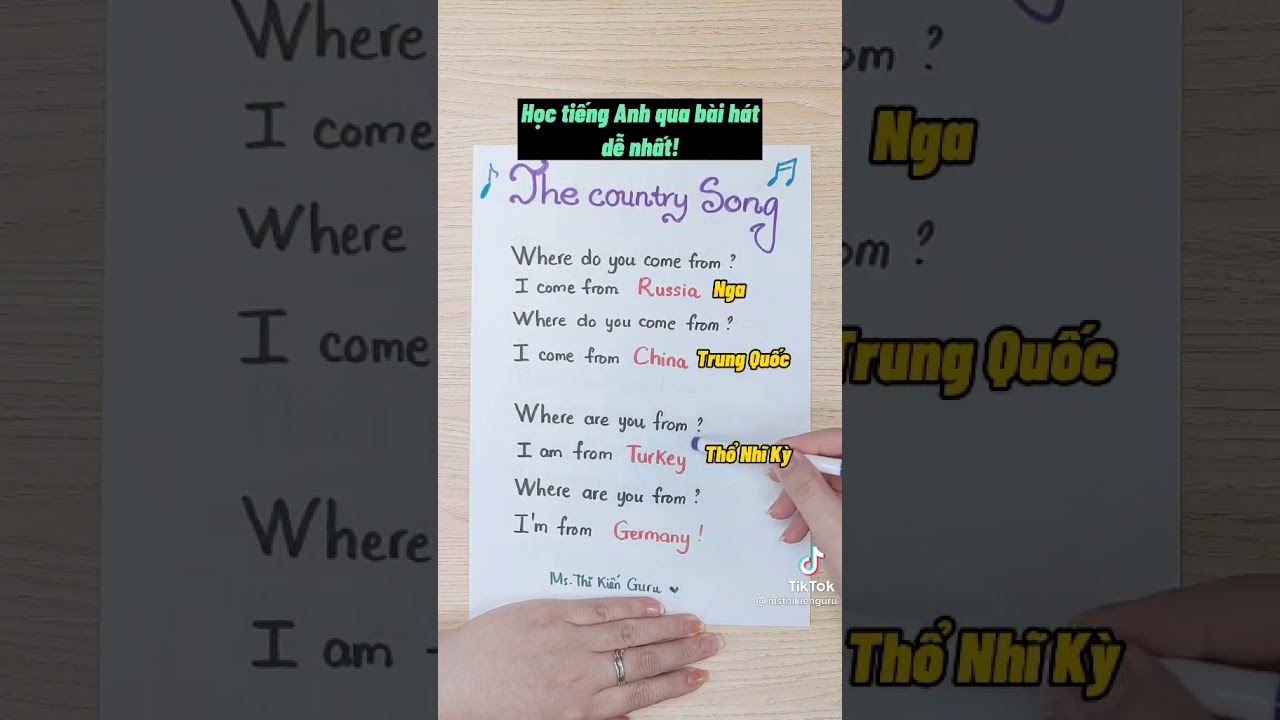 Học tiếng Anh qua bài hát
dễ nhất!
The country Song
Where do you come from?
I come from Russia Nga
Where do you come from?
I come from China Trung Quốc
Where are you from?
I am from Turkey Thổ Nhĩ Kỳ
Where are you from?
I'm from Germany!
Ms. Thi Kiến Guru
TikTok
@msthikienguru
Where
I come
Where
I come
Where
I am
om?
Nga
om?
Trung Quốc
Thổ Nhĩ Kỳ